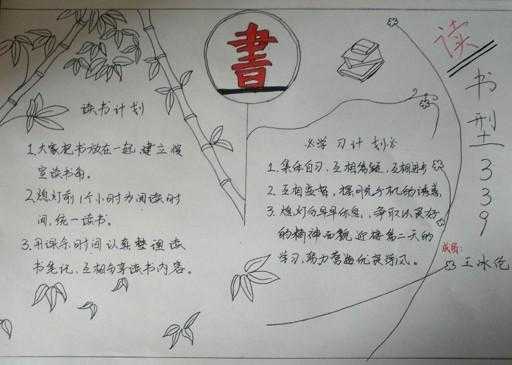 書
读
书
型
339
成员:
王冰伦
读书计划
1.大家把书放在一起,建立寝
室读书角。
2.熄灯前1个小时为阅读时
间,统一读书。
3.用课余时间认真整理读
书笔记,互相分享读书内容。
学习计划
1.集体自习,互相答疑,互相进步
2.互相监督,摆脱手机的诱惑
3.熄灯后早早休息,争取以良好
的精神面貌迎接第二天的
学习,努力营造优良学风。